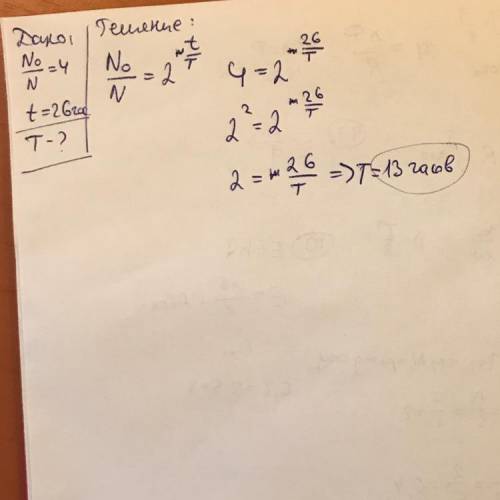 Дано:
N₀/N = 4
t = 26 час
T - ?
Решение:
N₀/N = 2^(t/T)
4 = 2^(26/T)
2² = 2^(26/T)
2 = 26/T => T = 13 часов